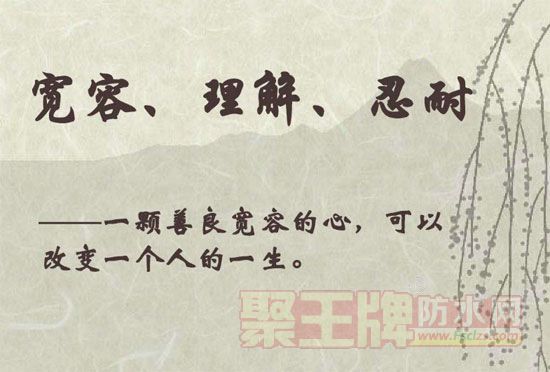 宽容、理解、忍耐
——一颗善良宽容的心，可以
改变一个人的一生。
聚王牌防水网